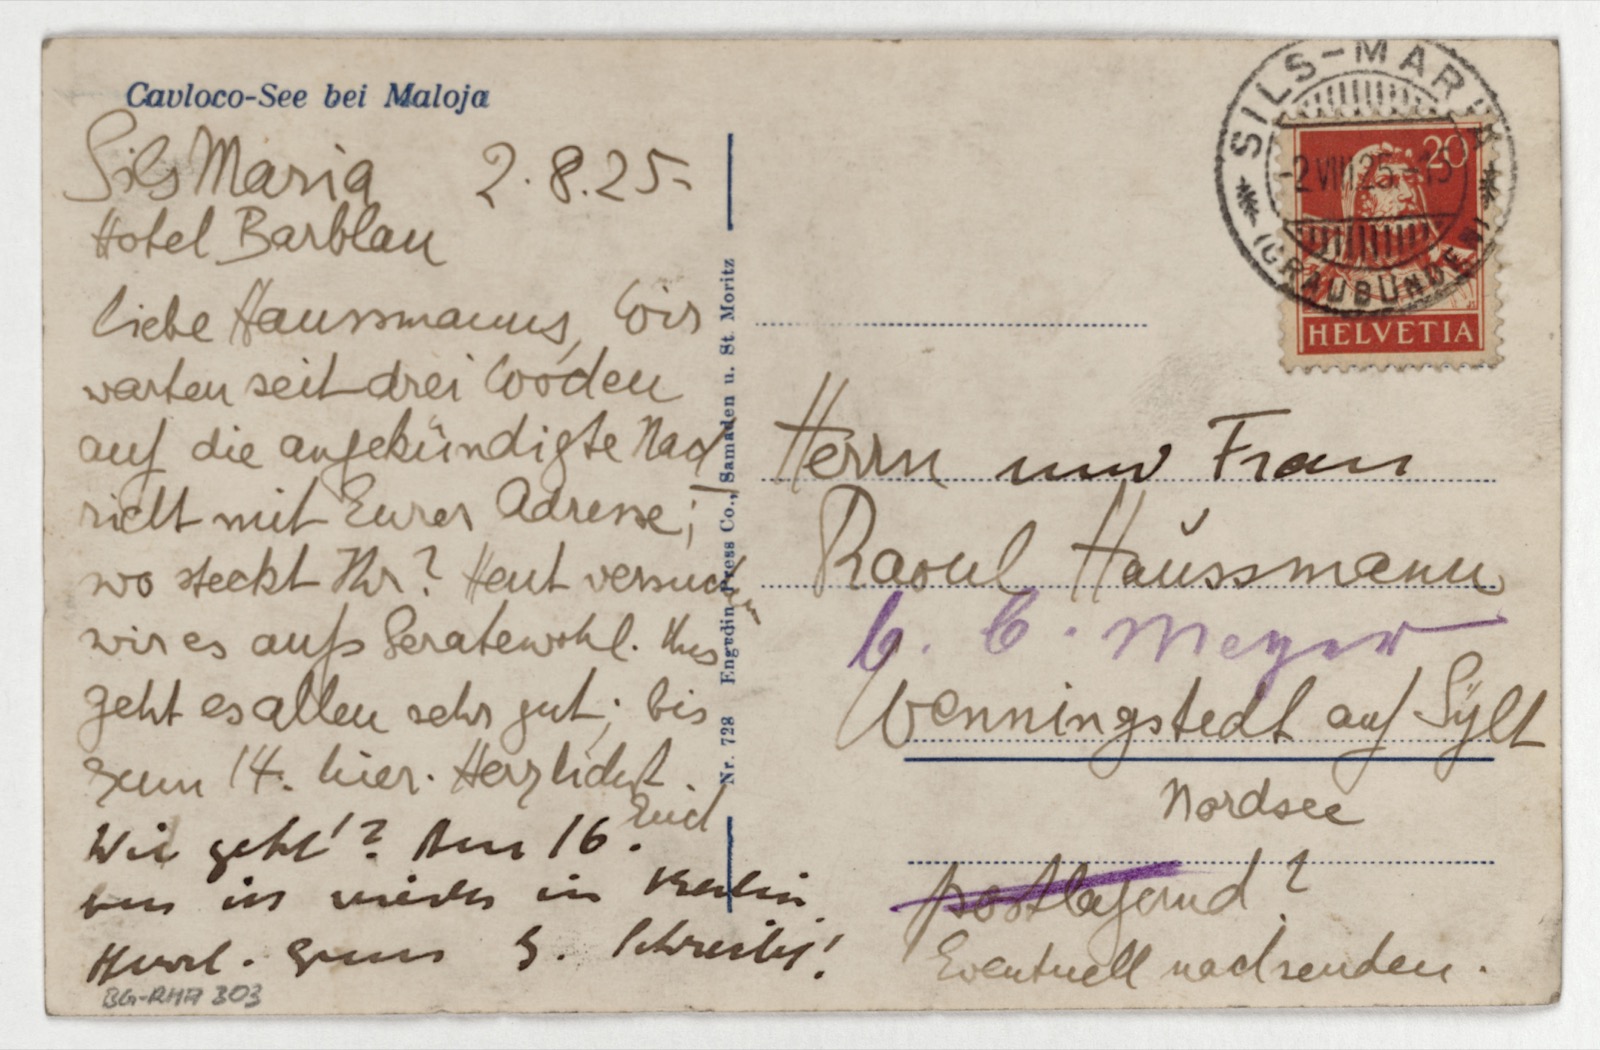 Cavloco-See bei Maloja
Sils Maria 2.8.25
Hotel Barblan
Liebe Haussmanns, Wir
warten seit drei Wochen
auf die angekündigte Nach
richt mit Eurer Adresse;
wo steckt Ihr? Heut versuchen
wir es aufs Geratewohl. Uns
geht es allen sehr gut; bis
zum 14. hier. Herzlichst
Wie geht's? Am 16.
bin ich wieder in Berlin.
Herzl. Gruss
BG-RHA 303
Nr. 728 Engadin Press Co., Samaden u. St. Moritz
SILS-MARIA
-2.VIII.25.-
(GRAUBÜNDEN)
20
HELVETIA
Herrn und Frau
Raoul Haussmann
b. C. Meyer
Wenningstedt auf Sylt
Nordsee
postlagernd?
Eventuell nachsenden.